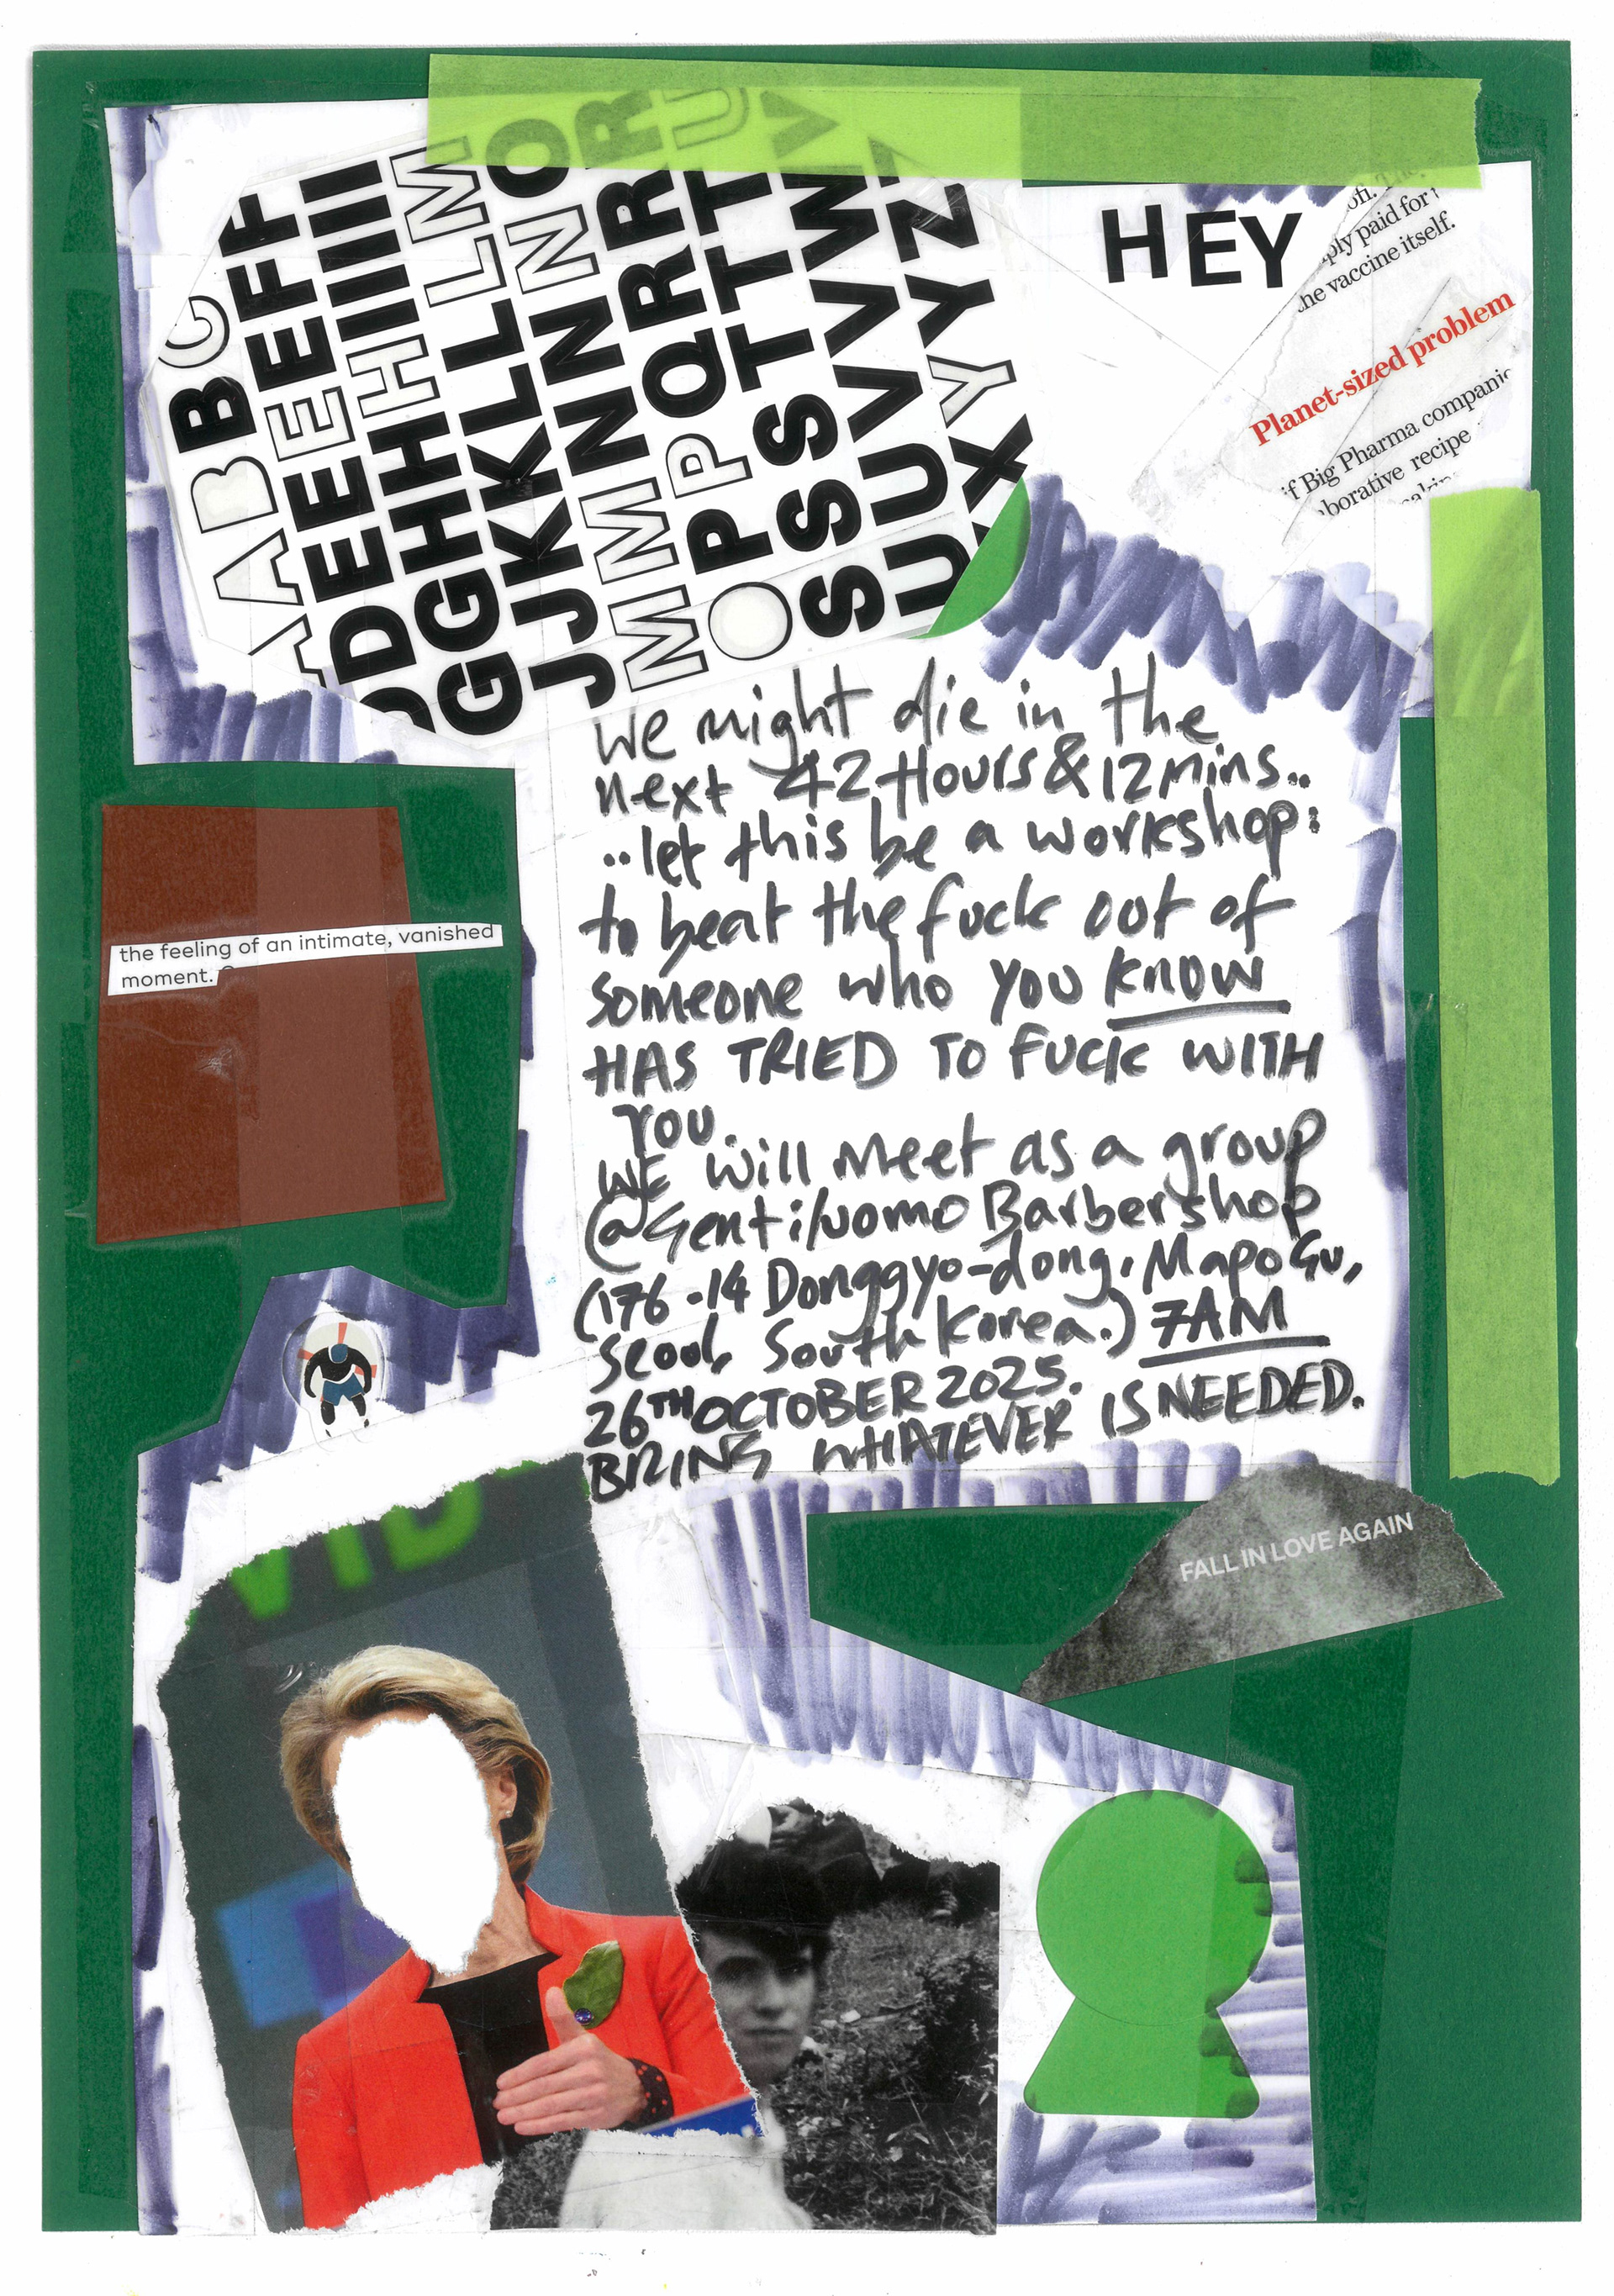 HEY
ply paid for
he vaccine itself.
Planet-sized problem
if Big Pharma companie
aborative recipe
We might die in the
next 42 Hours & 12 mins..
..let this be a workshop:
to beat the fuck out of
someone who you KNOW
HAS TRIED TO FUCK WITH
YOU.
WE will meet as a group
@Gentiluomo Barbershop
(176-14 Donggyo-dong, Mapo Gu,
Seoul, South Korea.) 7AM
26TH OCTOBER 2025.
BRING WHATEVER IS NEEDED.
the feeling of an intimate, vanished
moment.
FALL IN LOVE AGAIN
VID
C F F
B B E E I I I I I
A E E H I I I M
A E H H L L M O
D E H L L N N R
D G H K L N R R U
G G K N N Q R T V
J J K M N P Q T T W
M M P P S T V W Z
O S S U V Y Z
S U U X Y Y